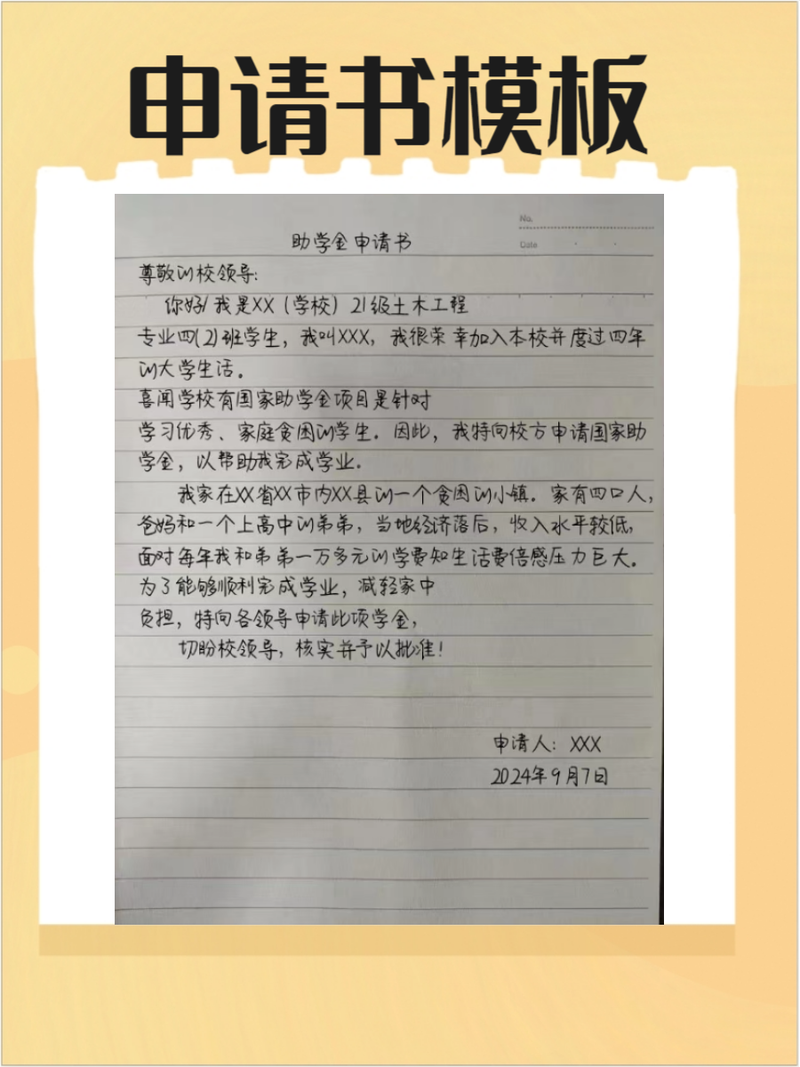 申请书模板
No.
Date
助学金申请书
尊敬的校领导：
你好！我是XX（学校）21级土木工程
专业四(2)班学生，我叫XXX，我很荣幸加入本校并度过四年
的大学生活。
喜闻学校有国家助学金项目是针对
学习优秀、家庭贫困的学生．因此，我特向校方申请国家助
学金，以帮助我完成学业．
我家在XX省XX市内XX县的一个贫困的小镇．家有四口人，
爸妈和一个上高中的弟弟，当地经济落后，收入水平较低，
面对每年我和弟弟一万多元的学费知生活费倍感压力巨大。
为了能够顺利完成学业，减轻家中
负担，特向各领导申请此项学金，
切盼校领导，核实并予以批准！
申请人：XXX
2024年9月7日